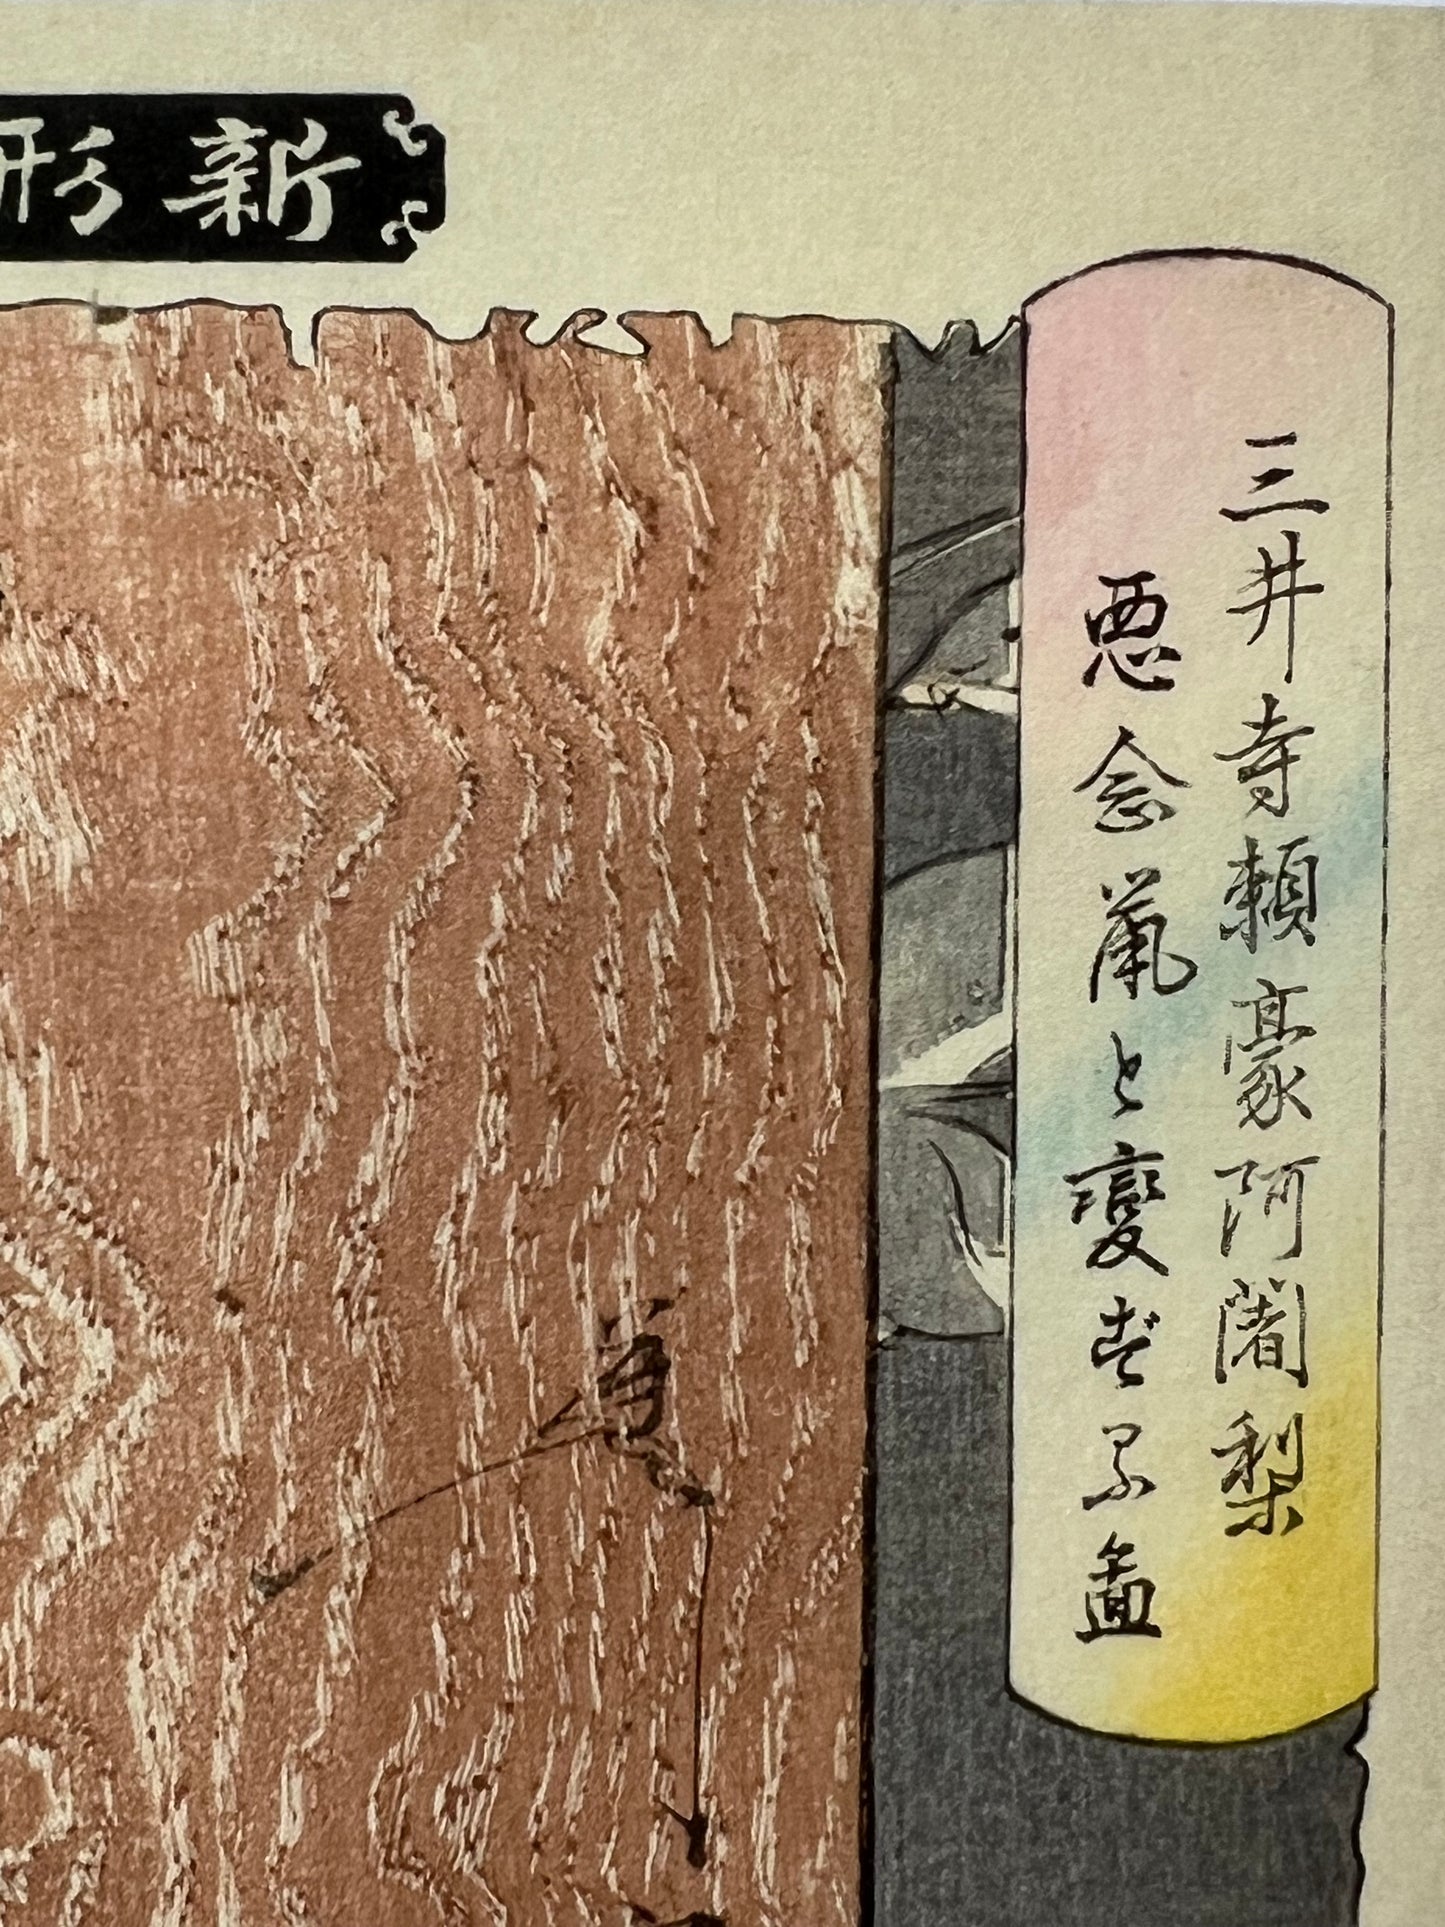 新形
三井寺頼豪阿闍梨
悪念鼠と変ずる図